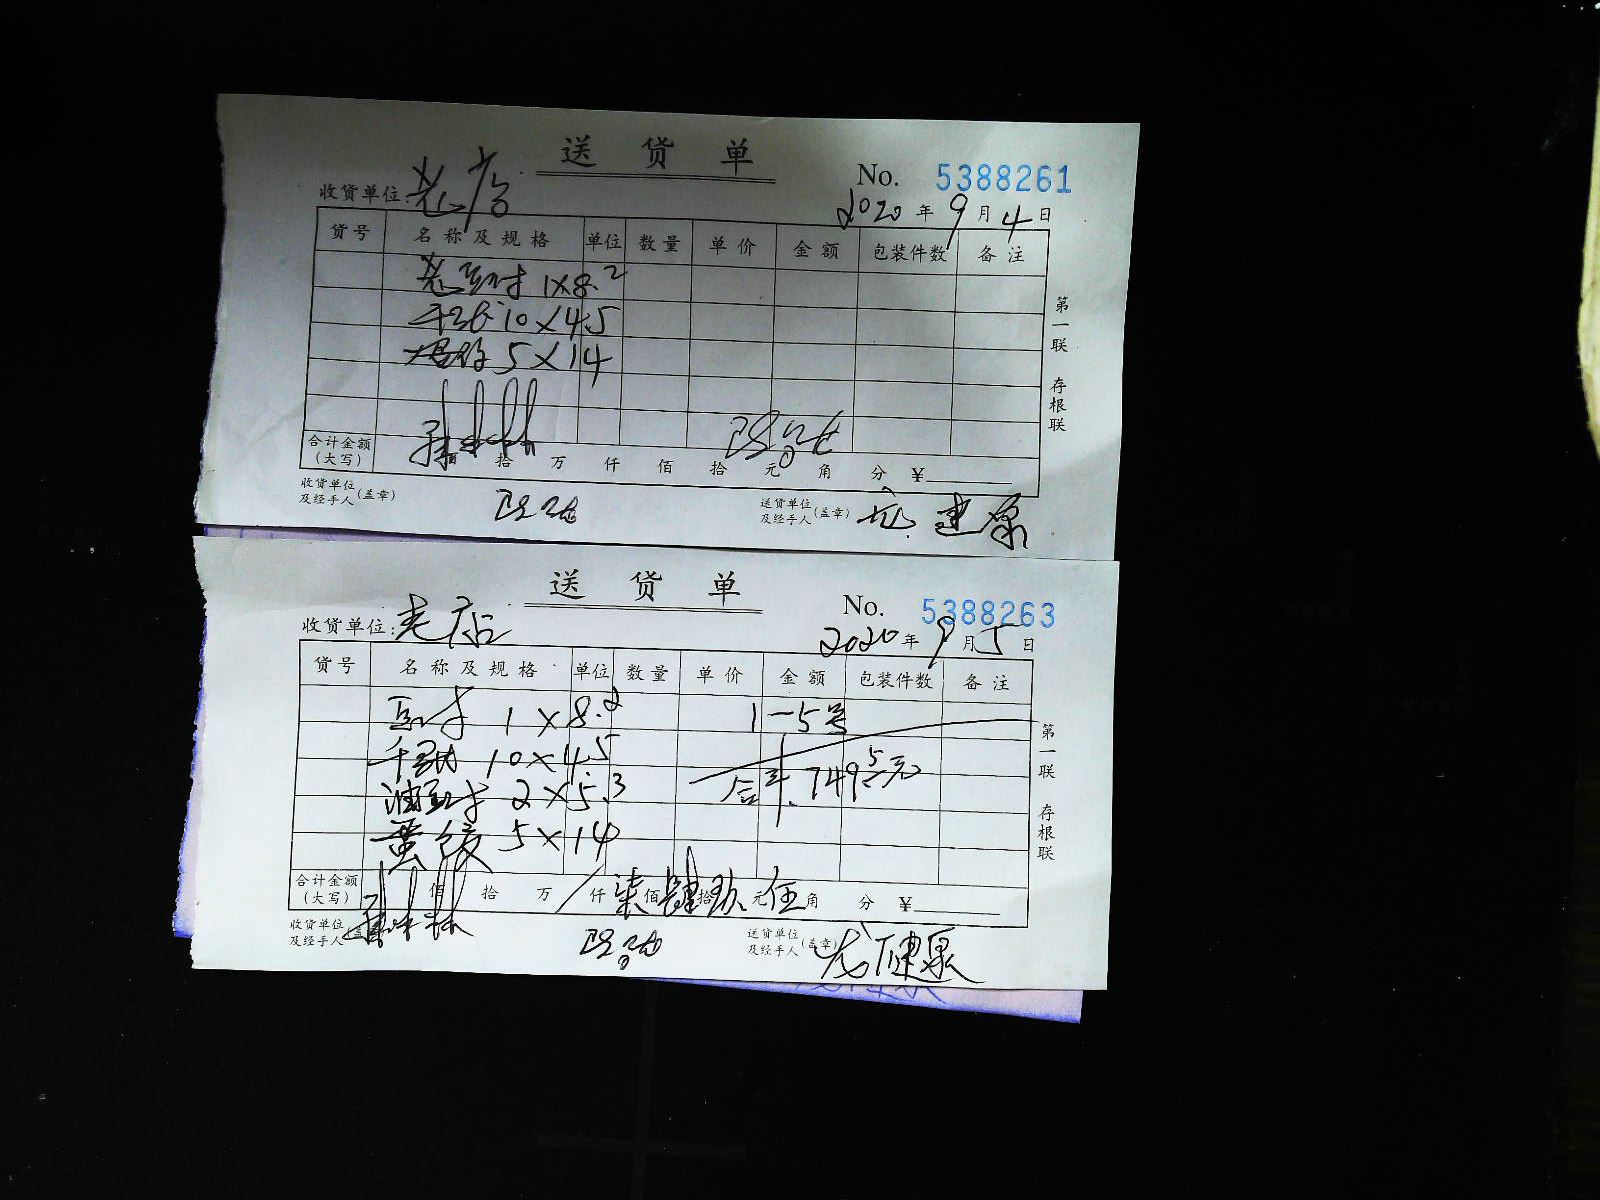 送 货 单
No. 5388261
收货单位: 老店
2020 年 9 月 4 日
货号 名称及规格 单位 数量 单价 金额 包装件数 备注
老豆腐 1×8.2
10×4.5
5×14
第一联 存根联
合计金额(大写) 佰 拾 万 仟 佰 拾 元 角 分 ¥
收货单位及经手人(盖章) 送货单位及经手人(盖章)
送 货 单
No. 5388263
收货单位: 老店
2020 年 9 月 5 日
货号 名称及规格 单位 数量 单价 金额 包装件数 备注
豆腐 1×8.2 1-5号
10×4.5 合计 749.5元
油豆腐 2×5.3
5×14
第一联 存根联
合计金额(大写) 佰 拾 万 仟 柒 佰 肆 拾 玖 元 伍 角 分 ¥
收货单位及经手人(盖章) 送货单位及经手人(盖章)